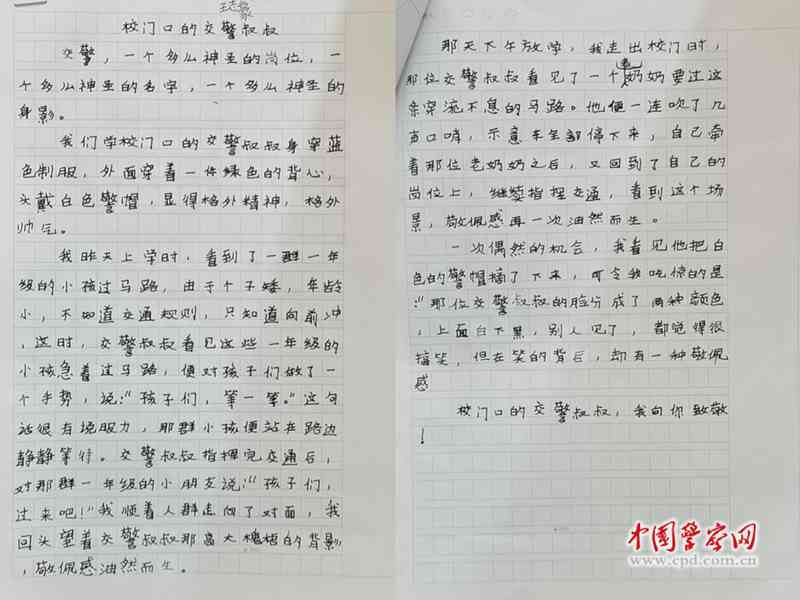 校门口的交警叔叔
交警，一个多么神圣的岗位，一
个多么神圣的名字，一个多么神圣的
身影。
我们学校门口的交警叔叔身穿蓝
色制服，外面穿着一件绿色的背心，
头戴白色警帽，显得格外精神，格外
帅气。
我昨天上学时，看到了一群一年
级的小孩过马路，由于个子矮，年龄
小，不知道交通规则，只知道向前冲
，这时，交警叔叔看见这些一年级的
小孩急着过马路，便对孩子们做了一
个手势，说：“孩子们，等一等。”这句
话很有说服力，那群小孩便站在路边
静静等待。交警叔叔指挥完交通后，
对那群一年级的小朋友说：“孩子们，
过来吧！”我顺着人群走向了对面，我
回头望着交警叔叔那高大魁梧的背影
，敬佩感油然而生。
那天下午放学，我走出校门时，
那位交警叔叔看见了一个老奶奶要过这
条穿流不息的马路。他便一连吹了几
声口哨，示意车全部停下来，自己牵
着那位老奶奶之后，又回到了自己的
岗位上，继续指挥交通，看到这个场
景，敬佩感再一次油然而生。
一次偶然的机会，我看见他把白
色的警帽摘了下来，可令我吃惊的是
：“那位交警叔叔的脸分成了两种颜色
，上面白下黑，别人见了，都觉得很
搞笑，但在笑的背后，却有一种敬佩
感
校门口的交警叔叔，我向你致敬
！
中国警察网
www.cpd.com.cn